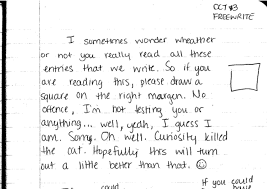 OCT 13
FREEWRITE
I sometimes wonder wheather
or not you really read all these
entries that we write. So if you
are reading this, please draw a
square on the right margin. No
offence, I'm not testing you or
anything... well, yeah, I guess I
am. Sorry. Oh well. Curiosity killed
the cat. Hopefully this will turn
out a little better than that. ☺
could
If you could